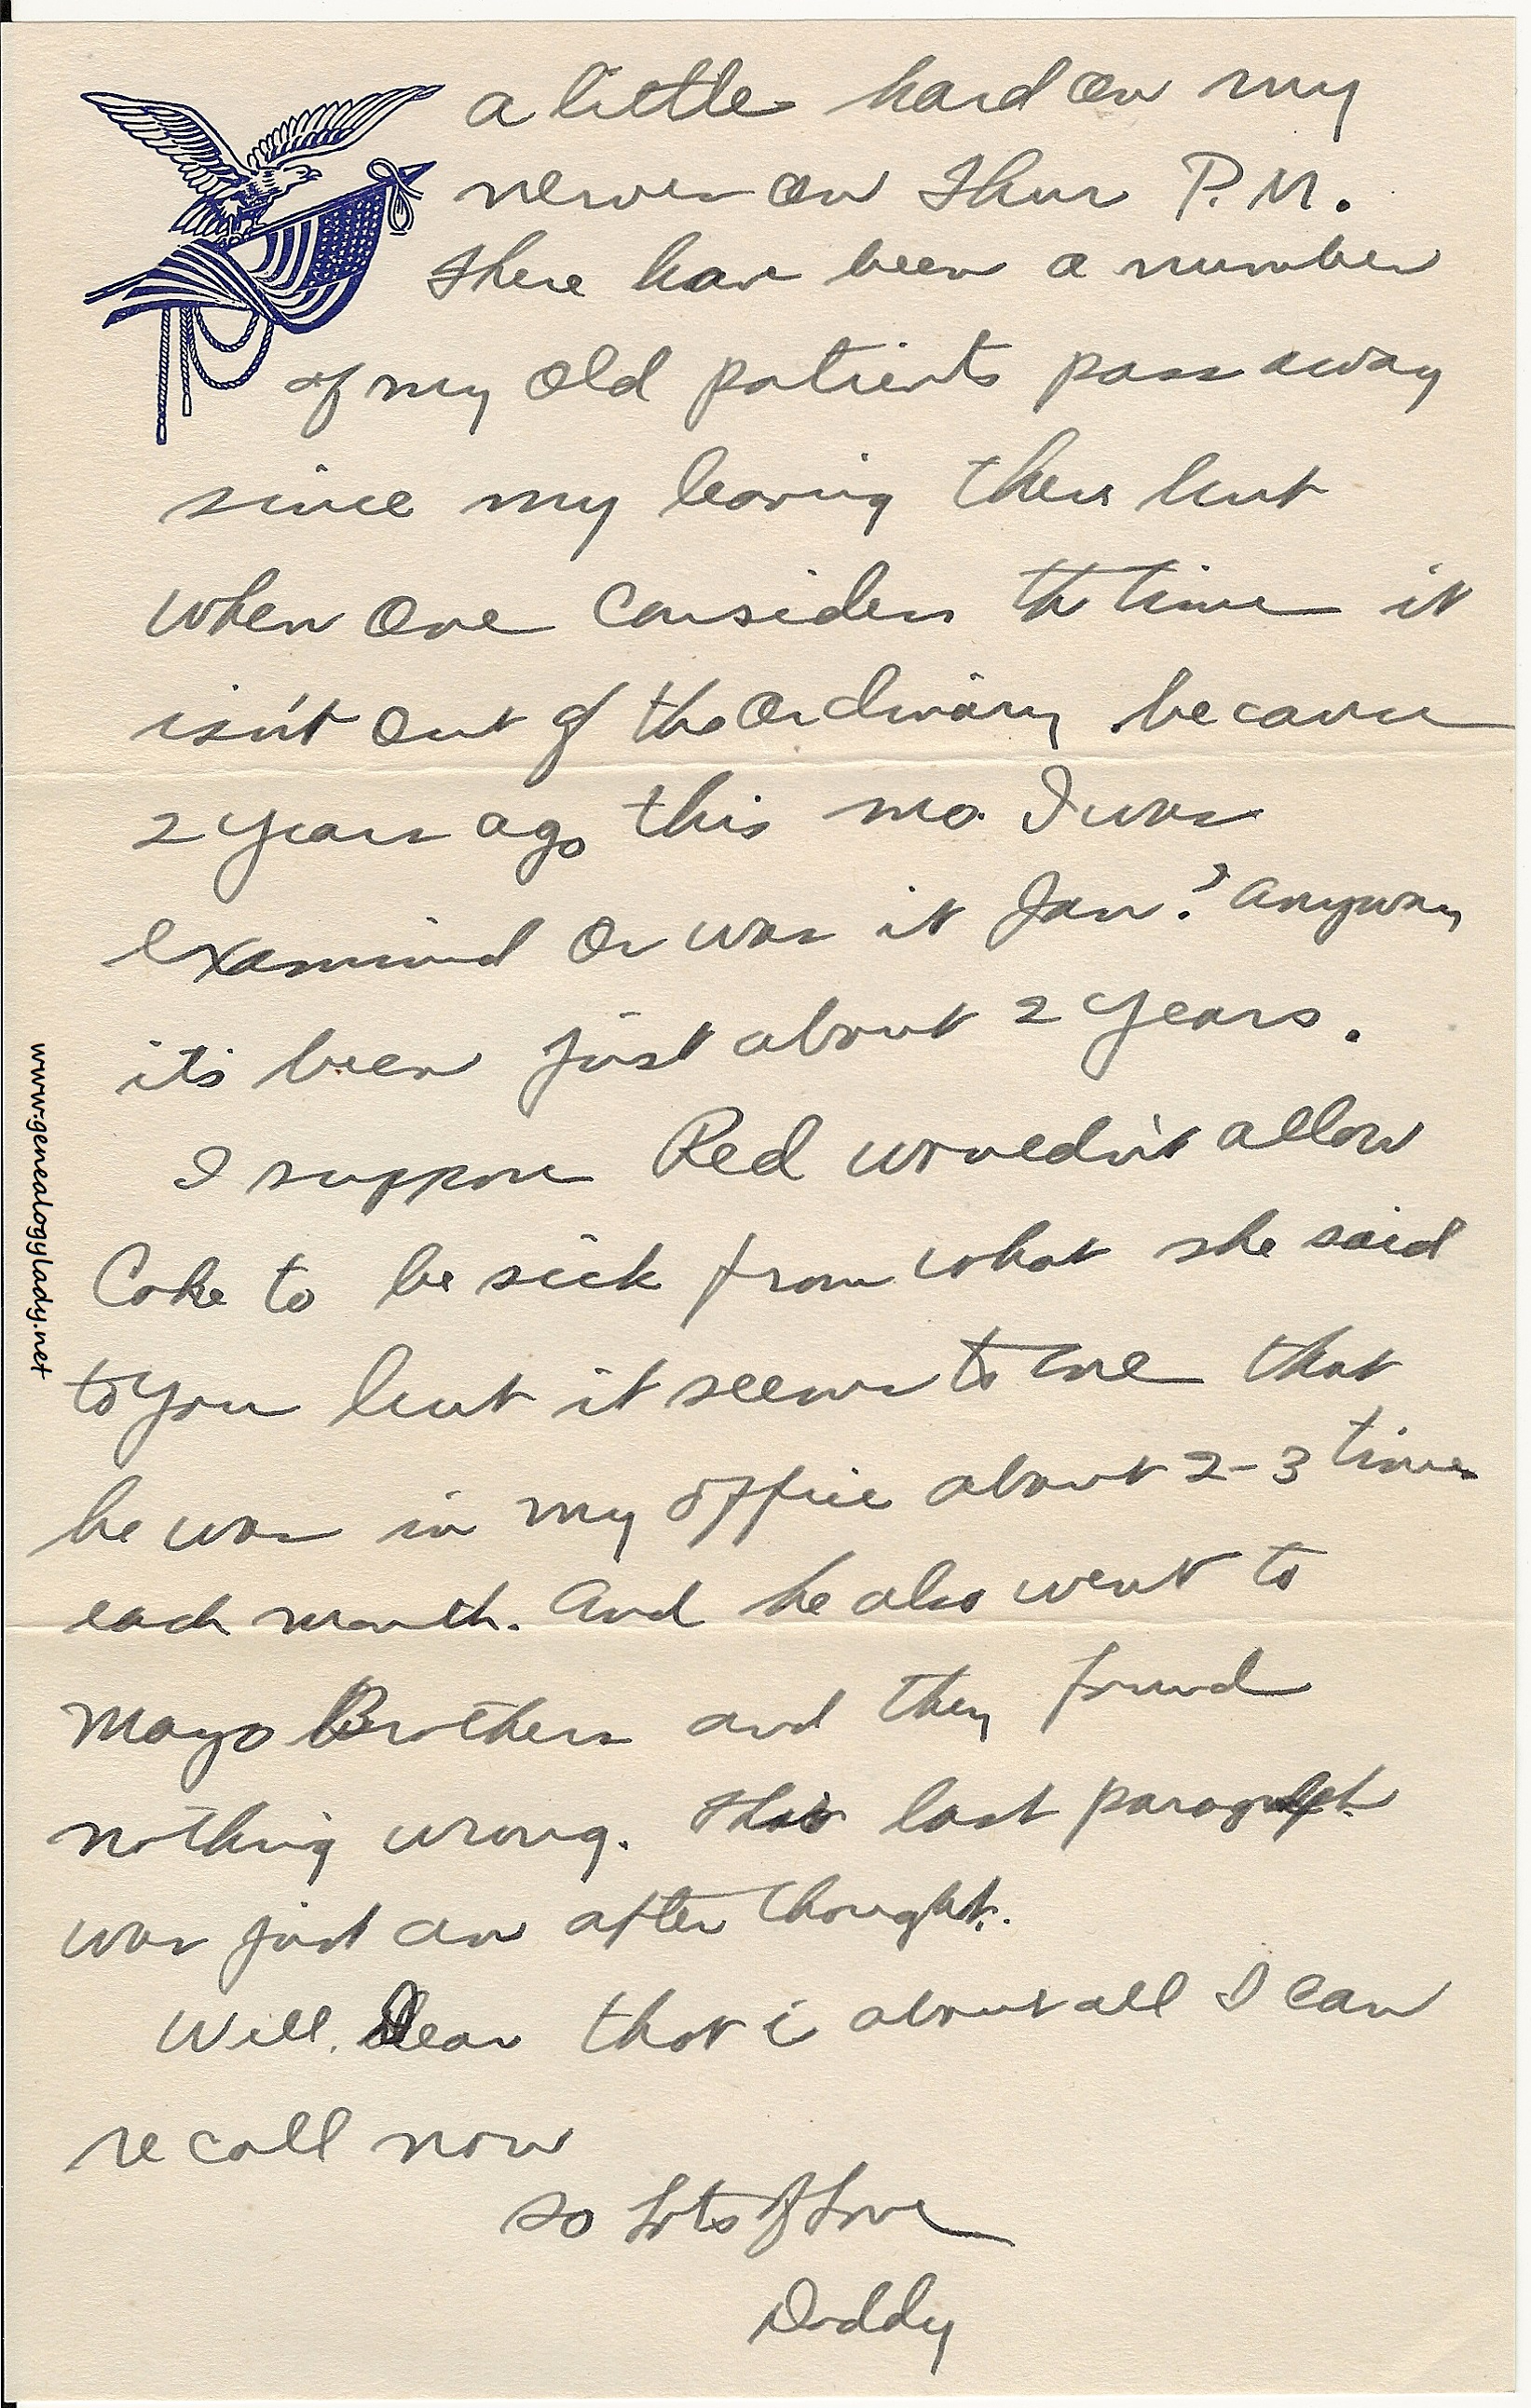 a little hard on my
nerves on Thur P.M.
There have been a number
of my old patients pass away
since my leaving there but
when one considers the time it
isn't out of the ordinary because
2 years ago this mo. I was
examined or was it Jan? Anyway
it's been just about 2 years.
I suppose Red wouldn't allow
Coke to be sick from what she said
to you but it seems to me that
he was in my office about 2-3 times
each month. And he also went to
Mayo Brothers and they found
nothing wrong. This last paragraph
was just an after thought.
Well, Dear that is about all I can
recall now
So Lots of Love
Daddy
www.genealogylady.net